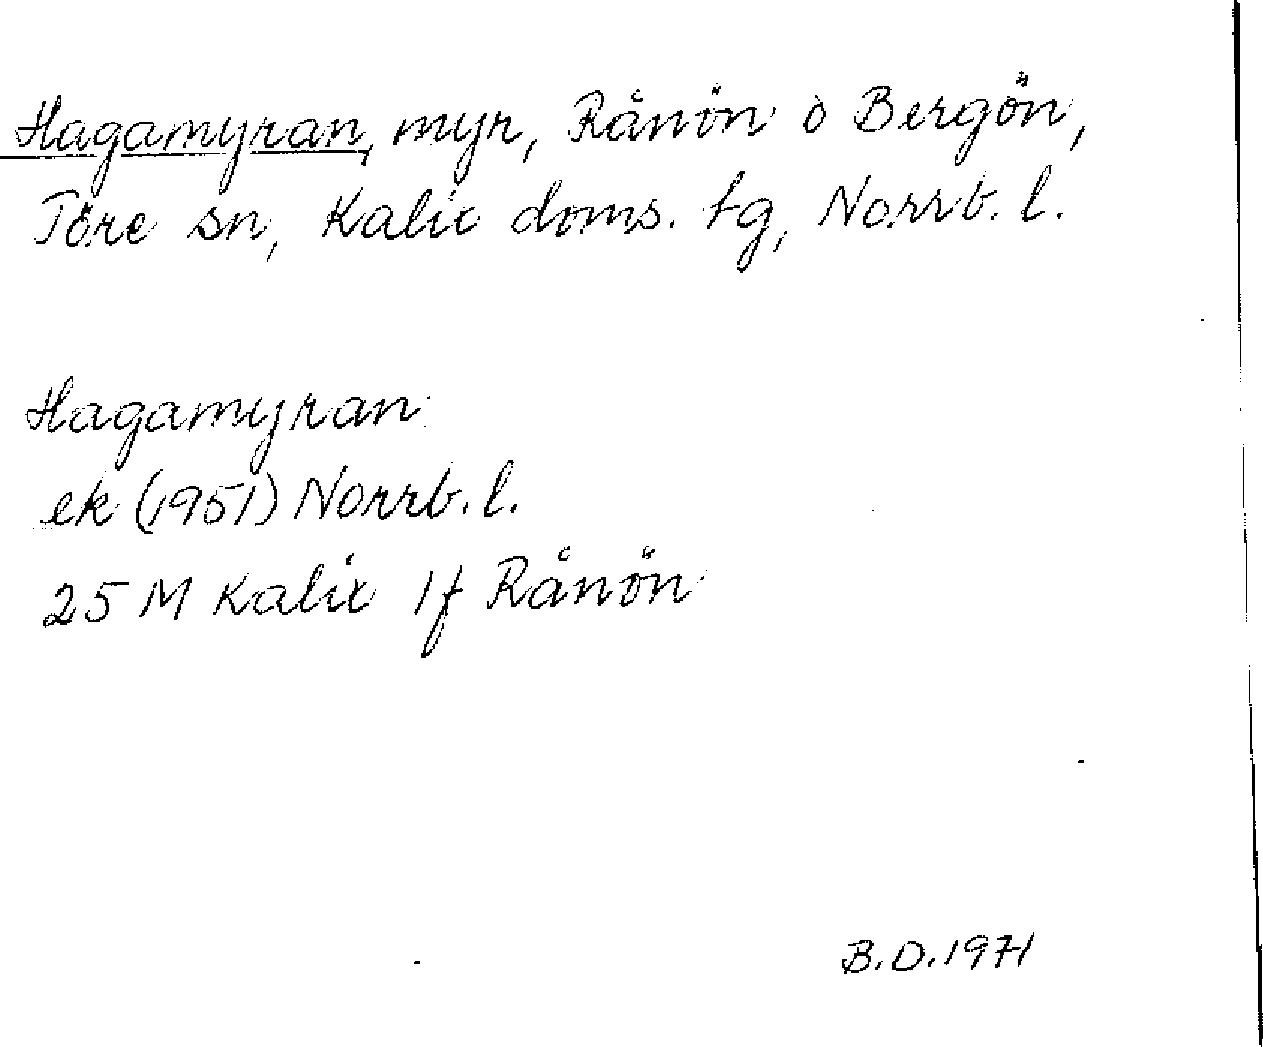 Hagamyran, myr, Rånön o Bergön,
Töre sn, Kalix doms. tg, Norrb. l.
Hagamyran
ek (1951) Norrb. l.
25 M Kalix 1f Rånön
B.D. 1971